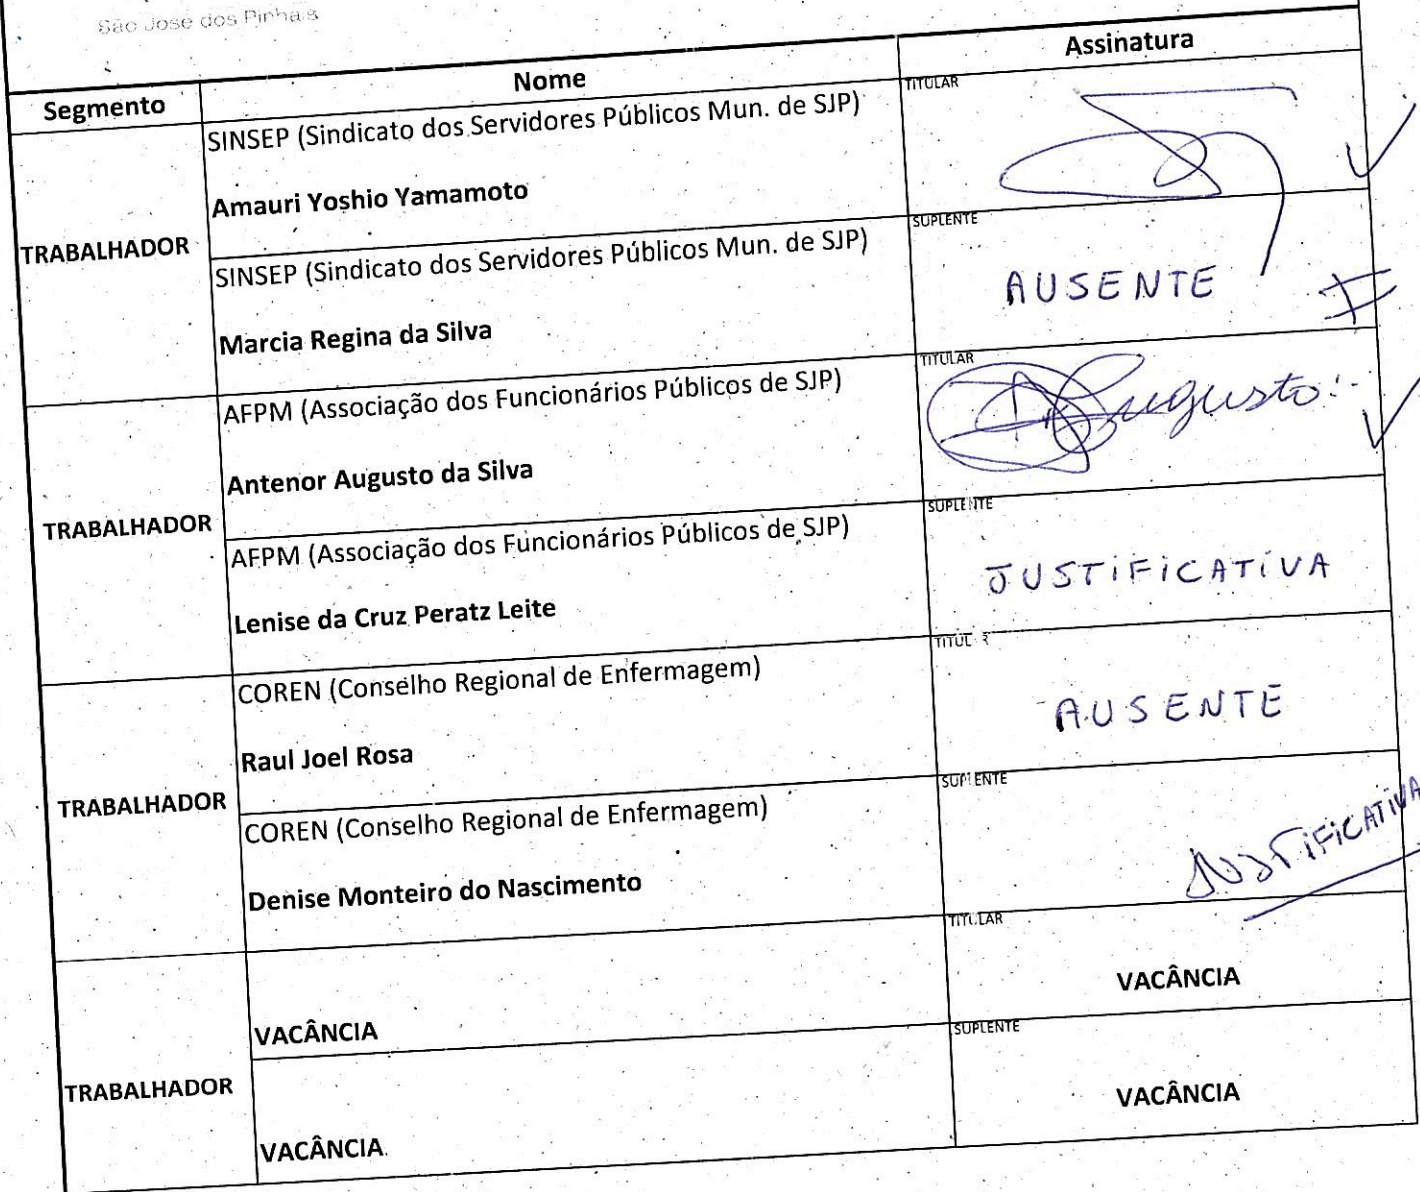 São José dos Pinhais
Segmento Nome Assinatura
TRABALHADOR
SINSEP (Sindicato dos Servidores Públicos Mun. de SJP)
Amauri Yoshio Yamamoto
TITULAR
SINSEP (Sindicato dos Servidores Públicos Mun. de SJP)
Marcia Regina da Silva
SUPLENTE
AUSENTE
TRABALHADOR
AFPM (Associação dos Funcionários Públicos de SJP)
Antenor Augusto da Silva
TITULAR
Augusto
AFPM (Associação dos Funcionários Públicos de SJP)
Lenise da Cruz Peratz Leite
SUPLENTE
JUSTIFICATIVA
TRABALHADOR
COREN (Conselho Regional de Enfermagem)
Raul Joel Rosa
TITULAR
AUSENTE
COREN (Conselho Regional de Enfermagem)
Denise Monteiro do Nascimento
SUPLENTE
JUSTIFICATIVA
TRABALHADOR
VACÂNCIA
TITULAR
VACÂNCIA
VACÂNCIA
SUPLENTE
VACÂNCIA